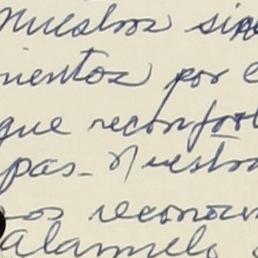 nuestros sin
mientos por e
que reconfort
pas. Nuestro
os reconoc